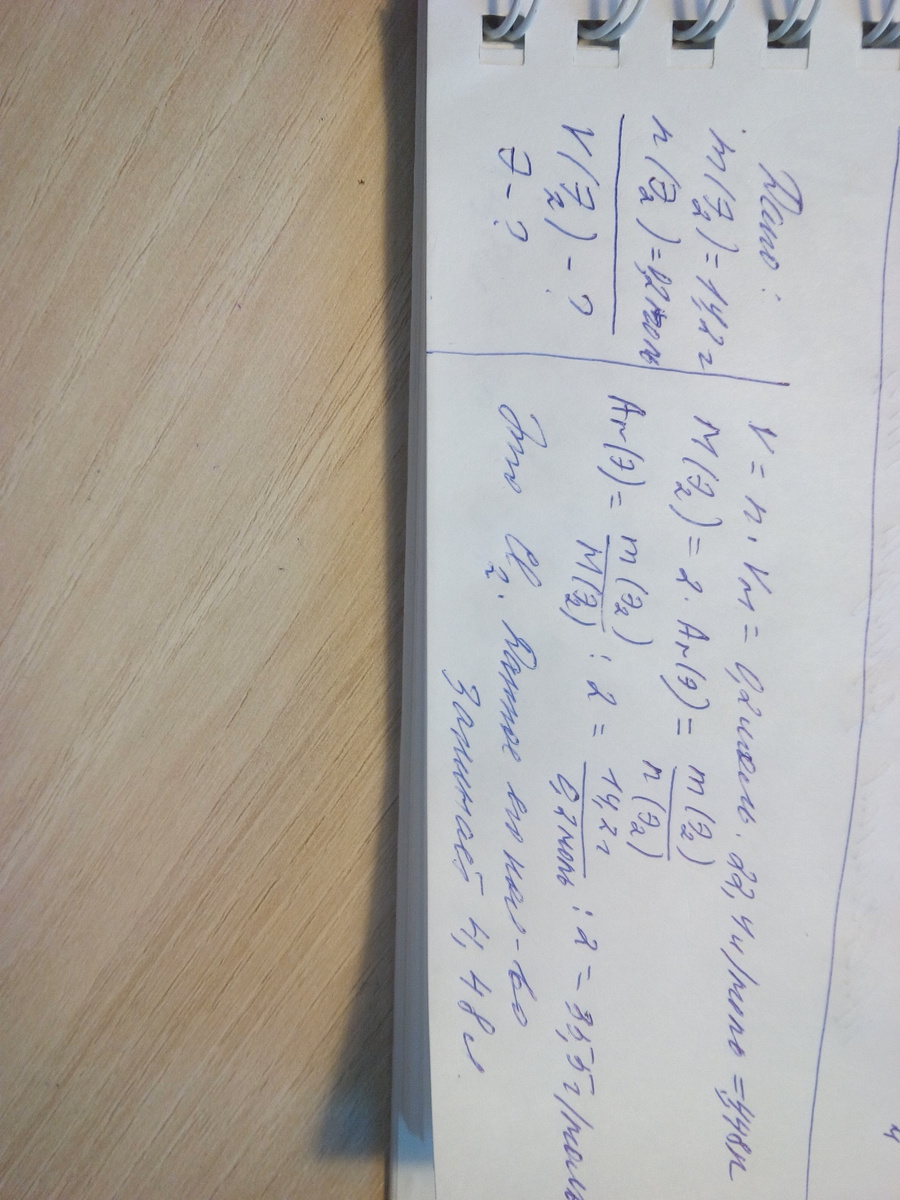 Дано:
m(Э₂) = 14,2 г
n(Э₂) = 0,2 моль
V(Э₂) - ?
Э - ?
V = n · Vm = 0,2 моль · 22,4 л/моль = 4,48 л
M(Э₂) = 2 · Ar(Э) = m(Э₂)/n(Э₂)
Ar(Э) = m(Э₂)/M(Э₂) : 2 = 14,2 г/0,2 моль : 2 = 35,5 г/моль
Это Cl₂. кол-во
занимает 4,48 л